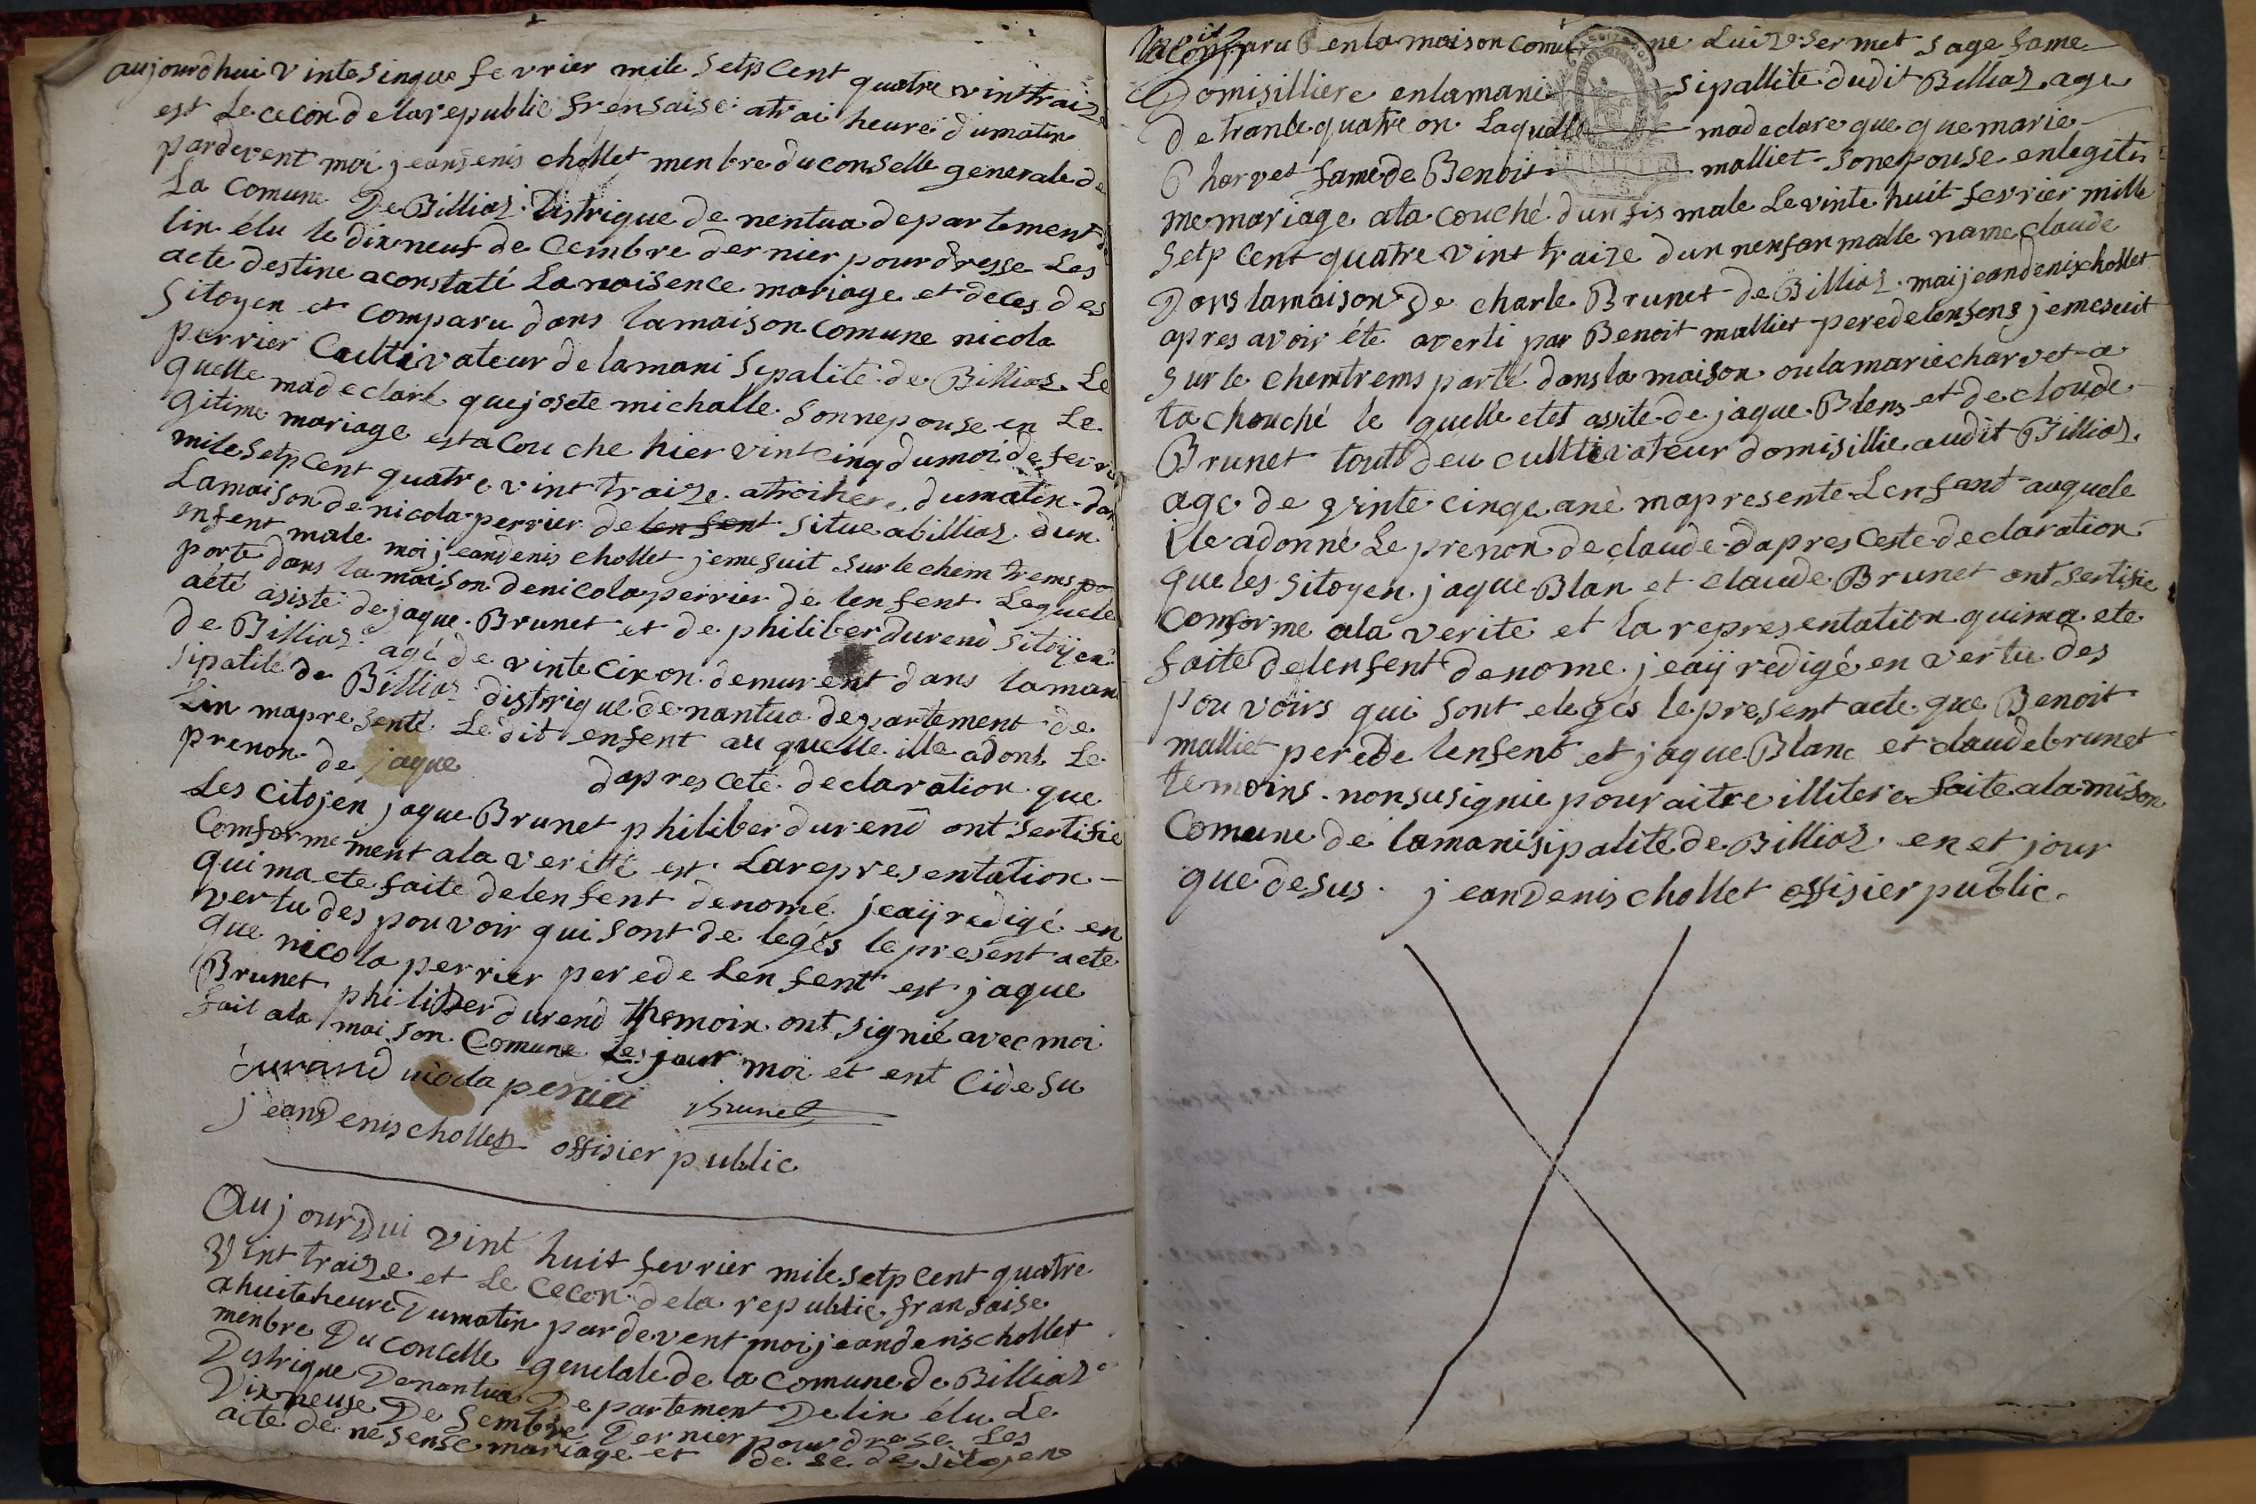 aujourdhui vinte sinque fevrier mile setp cent quatre vint traize
est le cecon de la republic frensaise a trai heure du matin
pardevent moi jean denis chollet menbre du conselle generale de
La Comune De Billiaz Distrique de nentua departement de
lin élu le dixneuf de cembre dernier pour dresse les
acte destine a constaté la naisence mariage et deces des
sitoyen et comparu dans la maison comune nicola
perrier Cultivateur de la mani sipalité de Billiaz le
quelle ma declaré que josete michalle sonnepouse en le
gitime mariage est acouche hier vint cinq du moi de fevri
mile setp cent quatre vint traize a troi here du matin dan
La maison de nicola perrier de lenfent situe a billiaz dun
enfent male moi jean denis chollet jeme suit sur le chem trems po
porte dans la maison de nicola perrier de lenfent lequele
aété asisté de jaque Brunet et de philiber durend sitoÿen
de Billiaz agé de vinte cix on demurent dans la mani
sipalité de Billiaz distrique de nantua departement de
Lin mapresenté le dit enfent au quelle ille adoné le
prenon de jaque dapres ceté declaration que
Les citojen jaque Brunet philiber durend ont sertifie
Comformement a la verité est la representation
qui ma eté faite delenfent denomé jeaÿ redigé en
vertu des pouvoir qui sont de legés le present acte
que nicola perrier pere de Lenfent est jaque
Brunet philiber durend themoin ont signié avec moi
fait ala maison Comune les jour moi et ent cidesu
durand nicola perrier Brunet
jean denis chollet offisier public
Aujourdui vint huit fevrier mile setp cent quatre
vint traize et le cecon de la republic fransaise
a huite heure du matin par devent moi jean denis chollet
menbre Du concelle generale de la comune de Billiaz
Distrique de nantua Departement De lin élu le
Dixneuf De Sembre Dernier pour drese les
acte de nesense mariage et de se des sitoyen
comparu en la maison comune Luize sermet sage fame
Domisilliere en la mani sipallite dudit Billiaz age
de trante quatre on laquelle ma declare que que marie
Charvet fame de Benoit malliet son epouse en legiti
me mariage ata couché dun fis male le vinte huit fevrier mille
setp cent quatre vint traize dun nenfan malle name claude
Dans la maison De charle Brunet de Billiaz mai jean denix chollet
apres avoir été averti par Benoit malliet pere de lenfens jeme suit
sur le chemtrems parté dans la maison ou la marie charvet a
ta chouché le quelle etet assite de jaque Blens et de cloude
Brunet tout deu cultivateur domisillie audit Billiaz
age de vinte cinqe ane mapresente Lenfant auquele
ile adonné le prenon de claude dapres ceste declaration
que les sitoyen jaque Blan et claude Brunet ont sertifie
Comforme ala verite et la representation qui ma ete
faite de lenfent denome jeaÿ redigé en vertu des
pouvoirs qui sont elegés le present acte que Benoit
malliet perede lenfent et jaque Blanc et claude brunet
temoins non susignie pour aitre illitere faite ala mison
Comune de la manisipalité de Billiaz en et jour
que desus jean Denis chollet offisier public